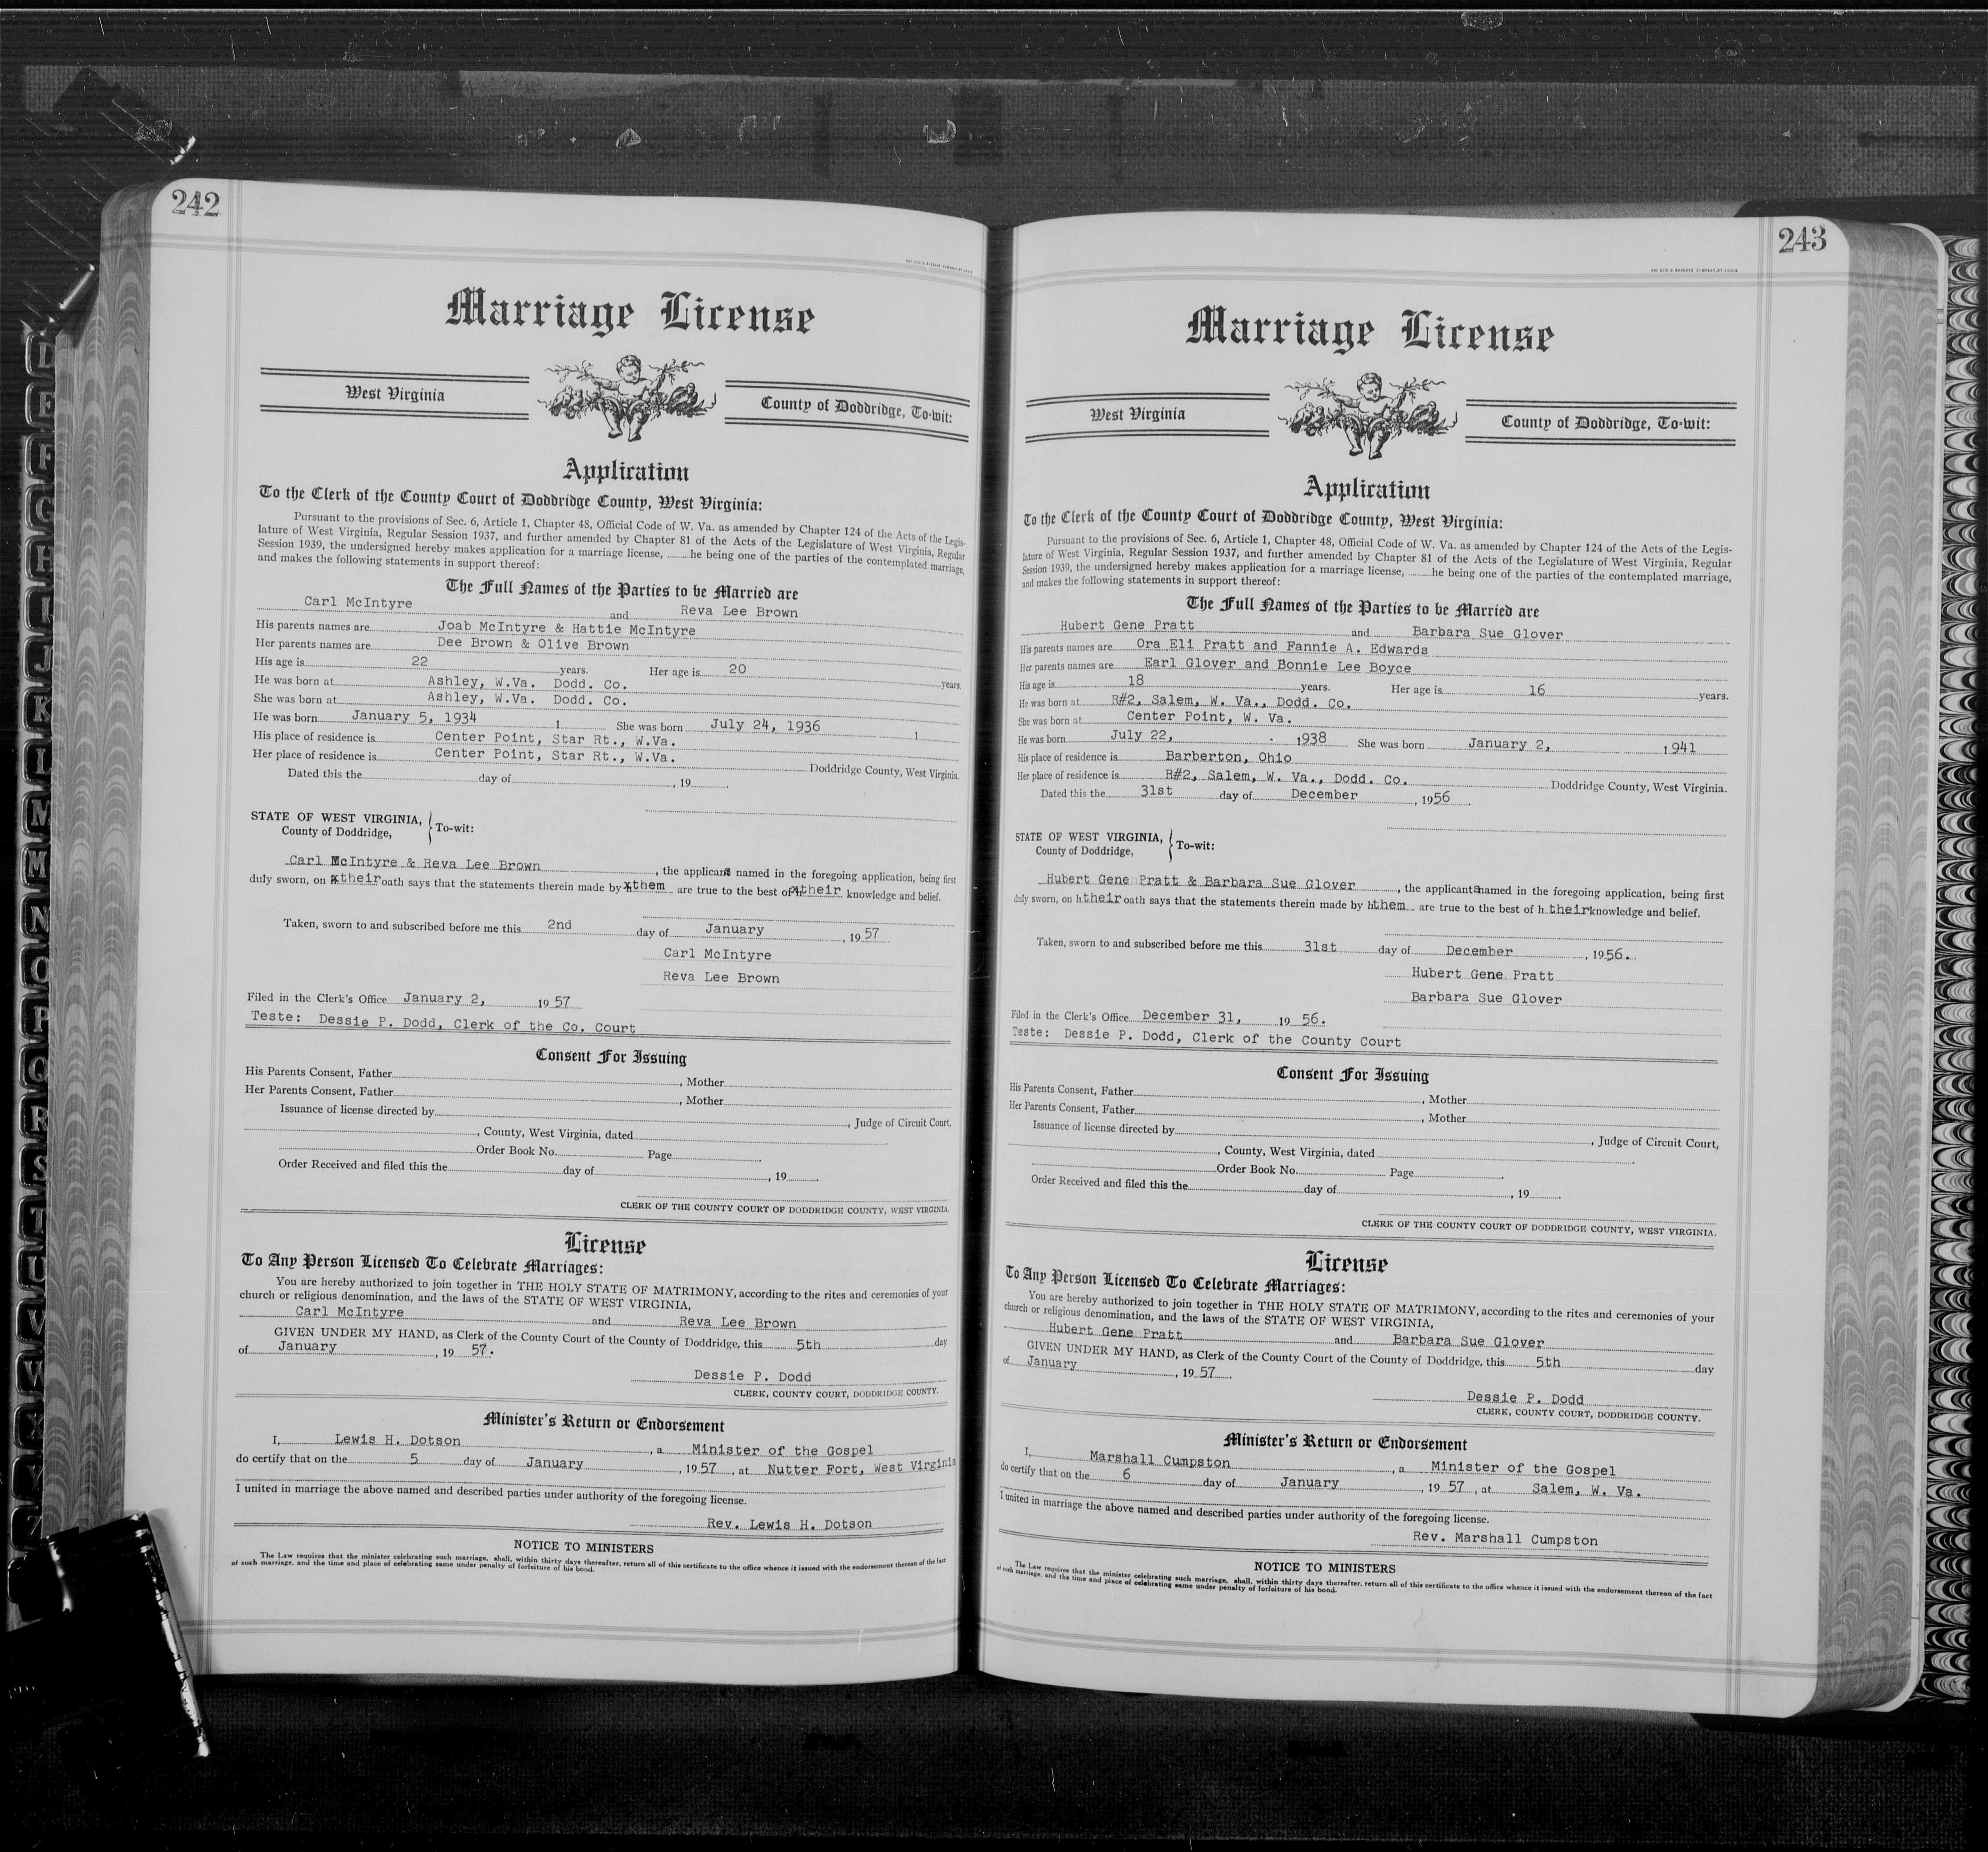 242
Marriage License
West Virginia
County of Doddridge, To-wit:
Application
To the Clerk of the County Court of Doddridge County, West Virginia:
Pursuant to the provisions of Sec. 6, Article 1, Chapter 48, Official Code of W. Va. as amended by Chapter 124 of the Acts of the Legis-
lature of West Virginia, Regular Session 1937, and further amended by Chapter 81 of the Acts of the Legislature of West Virginia, Regular
Session 1939, the undersigned hereby makes application for a marriage license, he being one of the parties of the contemplated marriage,
and makes the following statements in support thereof:
The Full Names of the Parties to be Married are
Carl McIntyre and Reva Lee Brown
His parents names are Joab McIntyre & Hattie McIntyre
Her parents names are Dee Brown & Olive Brown
His age is 22 years. Her age is 20 years.
He was born at Ashley, W.Va. Dodd. Co.
She was born at Ashley, W.Va. Dodd. Co.
He was born January 5, 1934 1 She was born July 24, 1936 1
His place of residence is Center Point, Star Rt., W.Va.
Her place of residence is Center Point, Star Rt., W.Va. Doddridge County, West Virginia.
Dated this the day of , 19 .
STATE OF WEST VIRGINIA,
County of Doddridge, To-wit:
Carl McIntyre & Reva Lee Brown , the applicants named in the foregoing application, being first
duly sworn, on their oath says that the statements therein made by them are true to the best of their knowledge and belief.
Taken, sworn to and subscribed before me this 2nd day of January , 19 57
Carl McIntyre
Reva Lee Brown
Filed in the Clerk's Office January 2, 19 57
Teste: Dessie P. Dodd, Clerk of the Co. Court
Consent For Issuing
His Parents Consent, Father , Mother
Her Parents Consent, Father , Mother
Issuance of license directed by , Judge of Circuit Court,
, County, West Virginia, dated .
Order Book No. Page .
Order Received and filed this the day of , 19 .
CLERK OF THE COUNTY COURT OF DODDRIDGE COUNTY, WEST VIRGINIA.
License
To Any Person Licensed To Celebrate Marriages:
You are hereby authorized to join together in THE HOLY STATE OF MATRIMONY, according to the rites and ceremonies of your
church or religious denomination, and the laws of the STATE OF WEST VIRGINIA,
Carl McIntyre and Reva Lee Brown
GIVEN UNDER MY HAND, as Clerk of the County Court of the County of Doddridge, this 5th day
of January , 19 57.
Dessie P. Dodd
CLERK, COUNTY COURT, DODDRIDGE COUNTY.
Minister's Return or Endorsement
I, Lewis H. Dotson , a Minister of the Gospel
do certify that on the 5 day of January , 19 57 , at Nutter Fort, West Virginia
I united in marriage the above named and described parties under authority of the foregoing license.
Rev. Lewis H. Dotson
NOTICE TO MINISTERS
The Law requires that the minister celebrating such marriage, shall, within thirty days thereafter, return all of this certificate to the office whence it issued with the endorsement thereon of the fact
of such marriage, and the time and place of celebrating same under penalty of forfeiture of his bond.
243
Marriage License
West Virginia
County of Doddridge, To-wit:
Application
To the Clerk of the County Court of Doddridge County, West Virginia:
Pursuant to the provisions of Sec. 6, Article 1, Chapter 48, Official Code of W. Va. as amended by Chapter 124 of the Acts of the Legis-
lature of West Virginia, Regular Session 1937, and further amended by Chapter 81 of the Acts of the Legislature of West Virginia, Regular
Session 1939, the undersigned hereby makes application for a marriage license, he being one of the parties of the contemplated marriage,
and makes the following statements in support thereof:
The Full Names of the Parties to be Married are
Hubert Gene Pratt and Barbara Sue Glover
His parents names are Ora Eli Pratt and Fannie A. Edwards
Her parents names are Earl Glover and Bonnie Lee Boyce
His age is 18 years. Her age is 16 years.
He was born at R#2, Salem, W. Va., Dodd. Co.
She was born at Center Point, W. Va.
He was born July 22, 1938 She was born January 2, 1941
His place of residence is Barberton, Ohio
Her place of residence is R#2, Salem, W. Va., Dodd. Co. Doddridge County, West Virginia.
Dated this the 31st day of December , 1956 .
STATE OF WEST VIRGINIA,
County of Doddridge, To-wit:
Hubert Gene Pratt & Barbara Sue Glover , the applicants named in the foregoing application, being first
duly sworn, on h their oath says that the statements therein made by h them are true to the best of h their knowledge and belief.
Taken, sworn to and subscribed before me this 31st day of December , 1956.
Hubert Gene Pratt
Barbara Sue Glover
Filed in the Clerk's Office December 31, 19 56.
Teste: Dessie P. Dodd, Clerk of the County Court
Consent For Issuing
His Parents Consent, Father , Mother
Her Parents Consent, Father , Mother
Issuance of license directed by , Judge of Circuit Court,
, County, West Virginia, dated .
Order Book No. Page .
Order Received and filed this the day of , 19 .
CLERK OF THE COUNTY COURT OF DODDRIDGE COUNTY, WEST VIRGINIA.
License
To Any Person Licensed To Celebrate Marriages:
You are hereby authorized to join together in THE HOLY STATE OF MATRIMONY, according to the rites and ceremonies of your
church or religious denomination, and the laws of the STATE OF WEST VIRGINIA,
Hubert Gene Pratt and Barbara Sue Glover
GIVEN UNDER MY HAND, as Clerk of the County Court of the County of Doddridge, this 5th day
of January , 19 57 .
Dessie P. Dodd
CLERK, COUNTY COURT, DODDRIDGE COUNTY.
Minister's Return or Endorsement
I, Marshall Cumpston , a Minister of the Gospel
do certify that on the 6 day of January , 19 57 , at Salem, W. Va.
I united in marriage the above named and described parties under authority of the foregoing license.
Rev. Marshall Cumpston
NOTICE TO MINISTERS
The Law requires that the minister celebrating such marriage, shall, within thirty days thereafter, return all of this certificate to the office whence it issued with the endorsement thereon of the fact
of such marriage, and the time and place of celebrating same under penalty of forfeiture of his bond.